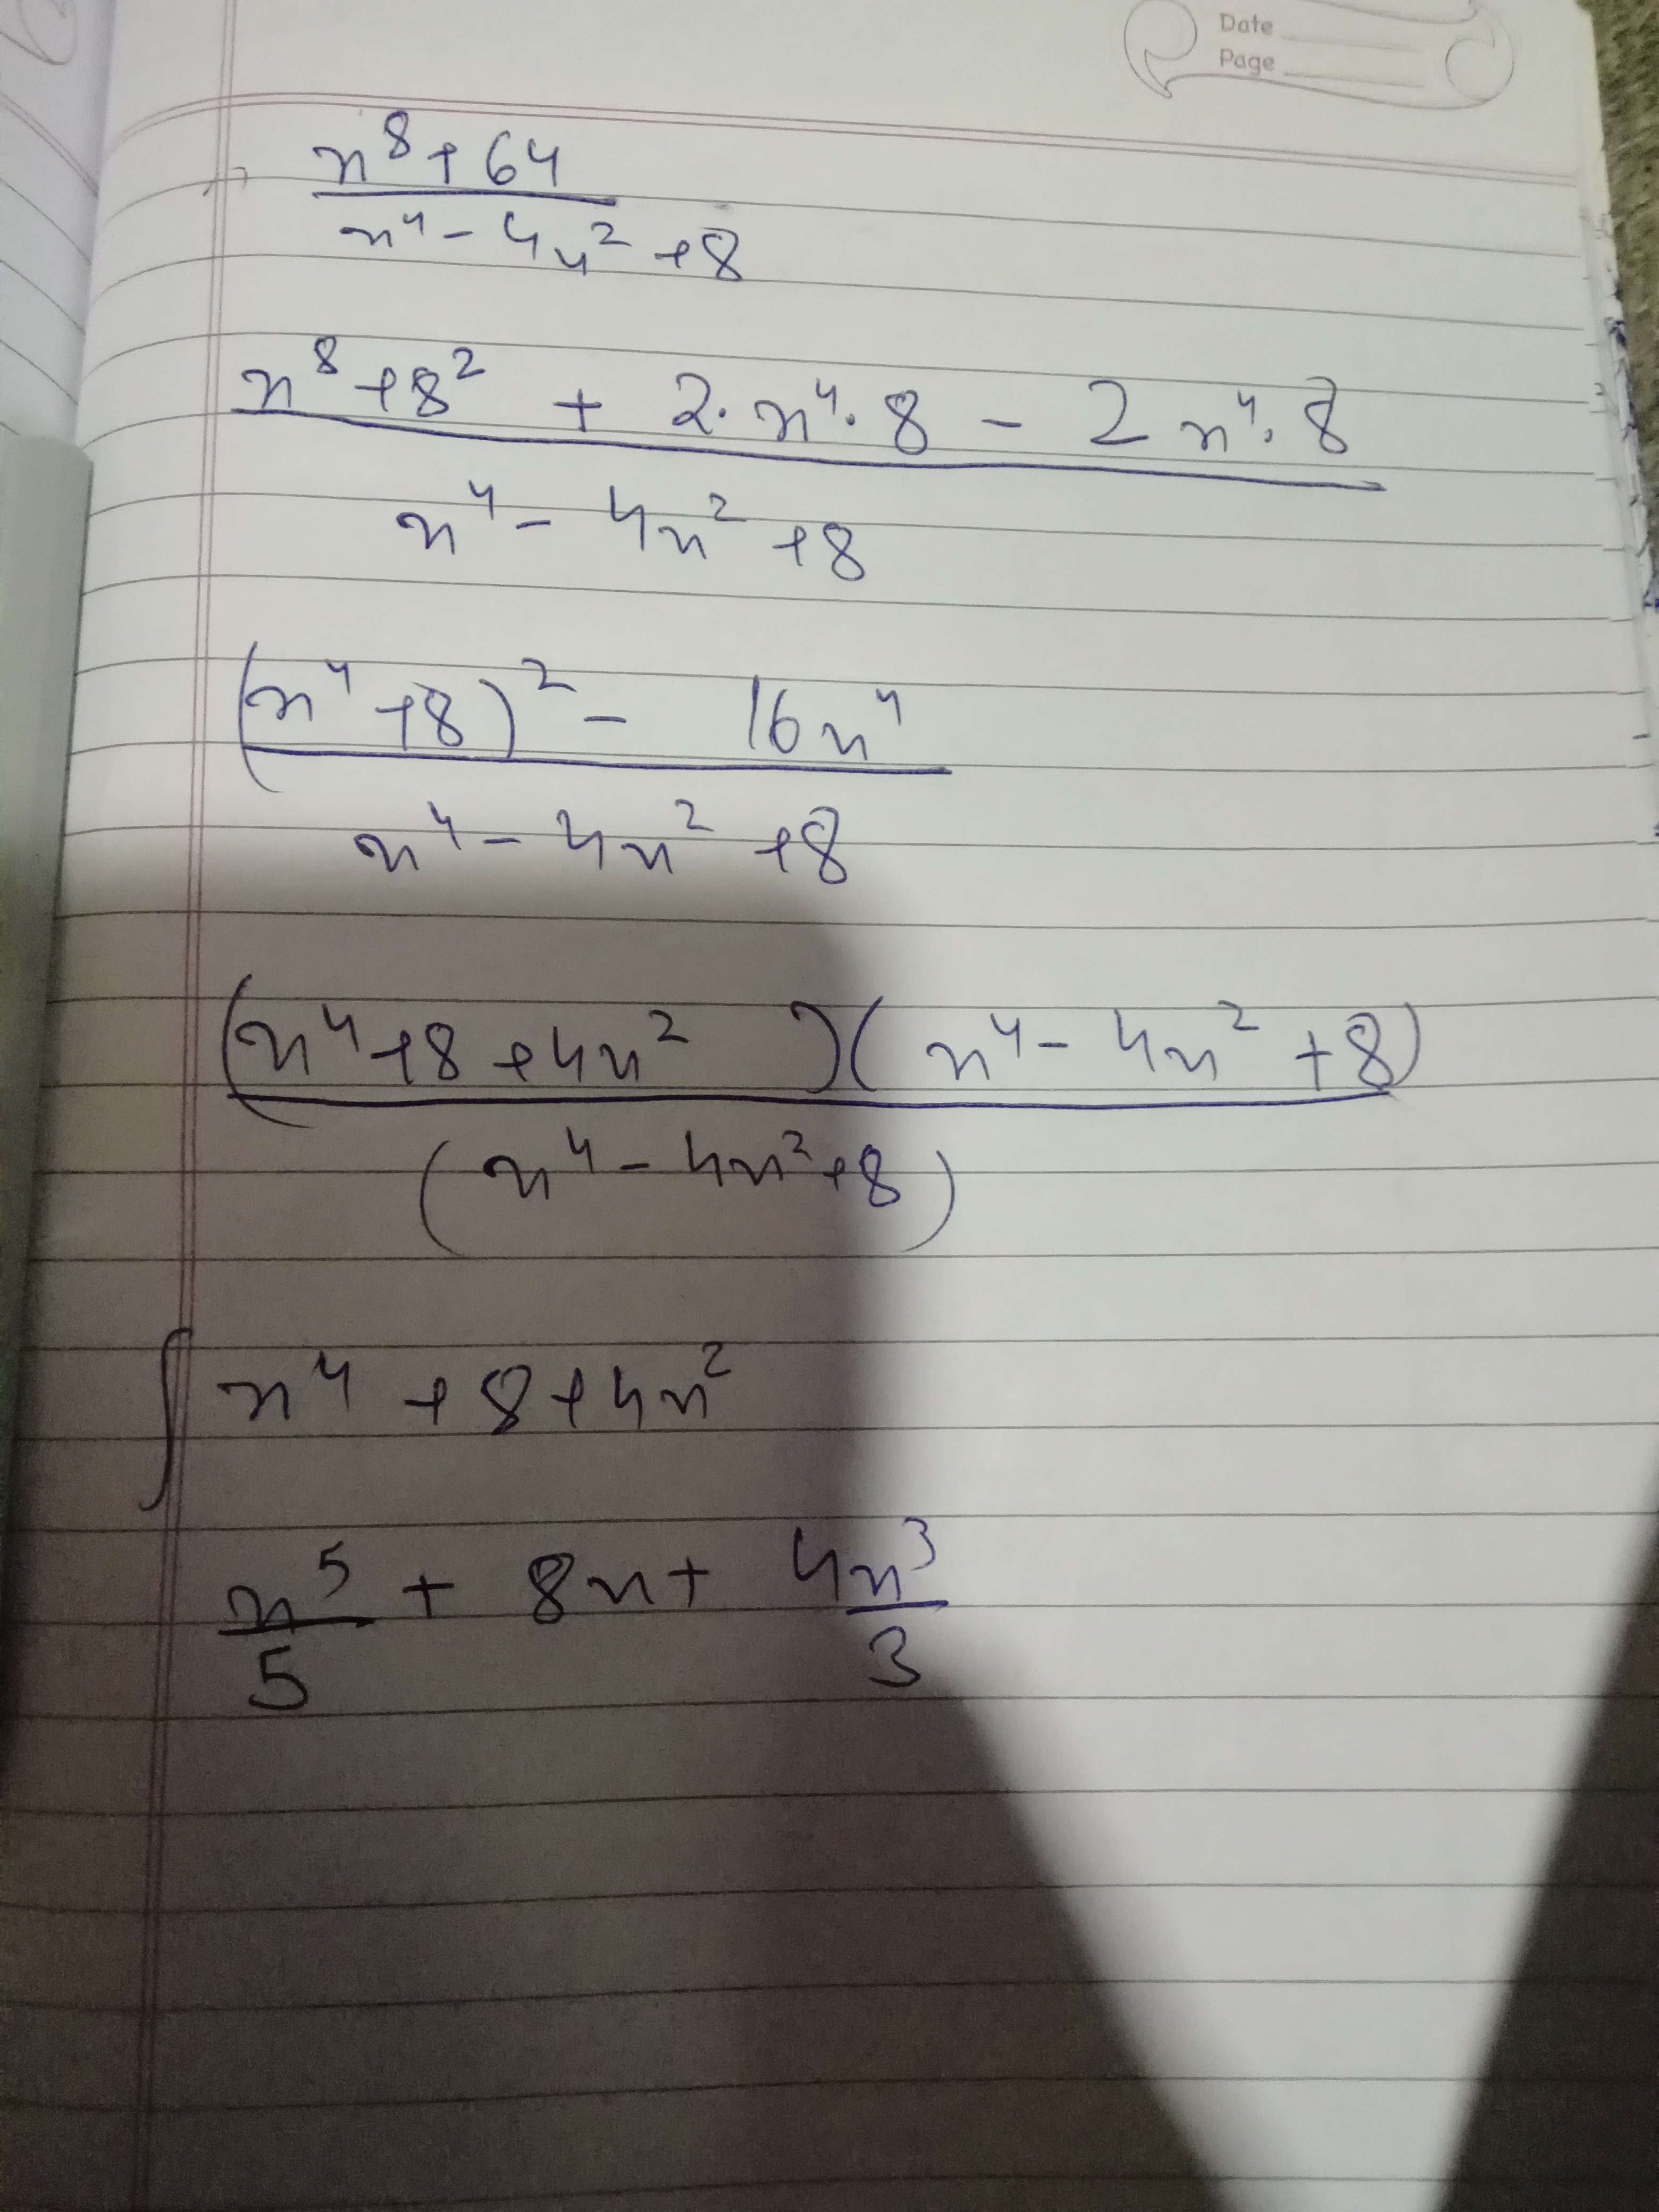 Date
Page
x⁸+64
x⁴-4x²+8
x⁸+8² + 2.x⁴.8 - 2x⁴.8
x⁴-4x²+8
(x⁴+8)² - 16x⁴
x⁴-4x²+8
(x⁴+8+4x²)(x⁴-4x²+8)
(x⁴-4x²+8)
∫x⁴+8+4x²
x⁵ + 8x + 4x³
5 3